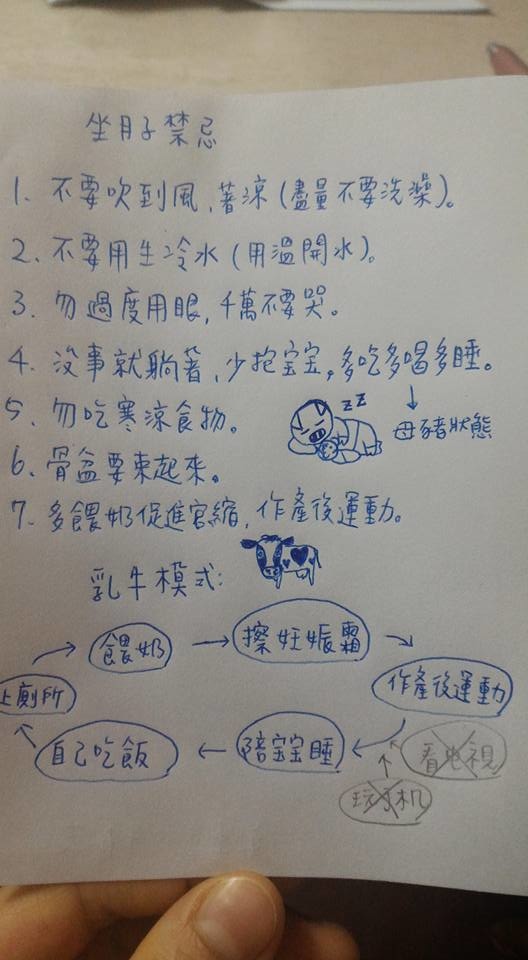 坐月子禁忌
1. 不要吹到風,著涼(盡量不要洗澡)。
2. 不要用生冷水(用溫開水)。
3. 勿過度用眼,千萬不要哭。
4. 沒事就躺著,少抱宝宝。多吃多喝多睡。
zz
母豬狀態
5. 勿吃寒涼食物。
6. 骨盆要束起來。
7. 多餵奶促進宮縮,作產後運動。
乳牛模式:
餵奶
擦妊娠霜
作產後運動
陪宝宝睡
自己吃飯
上廁所
看电視
玩手机